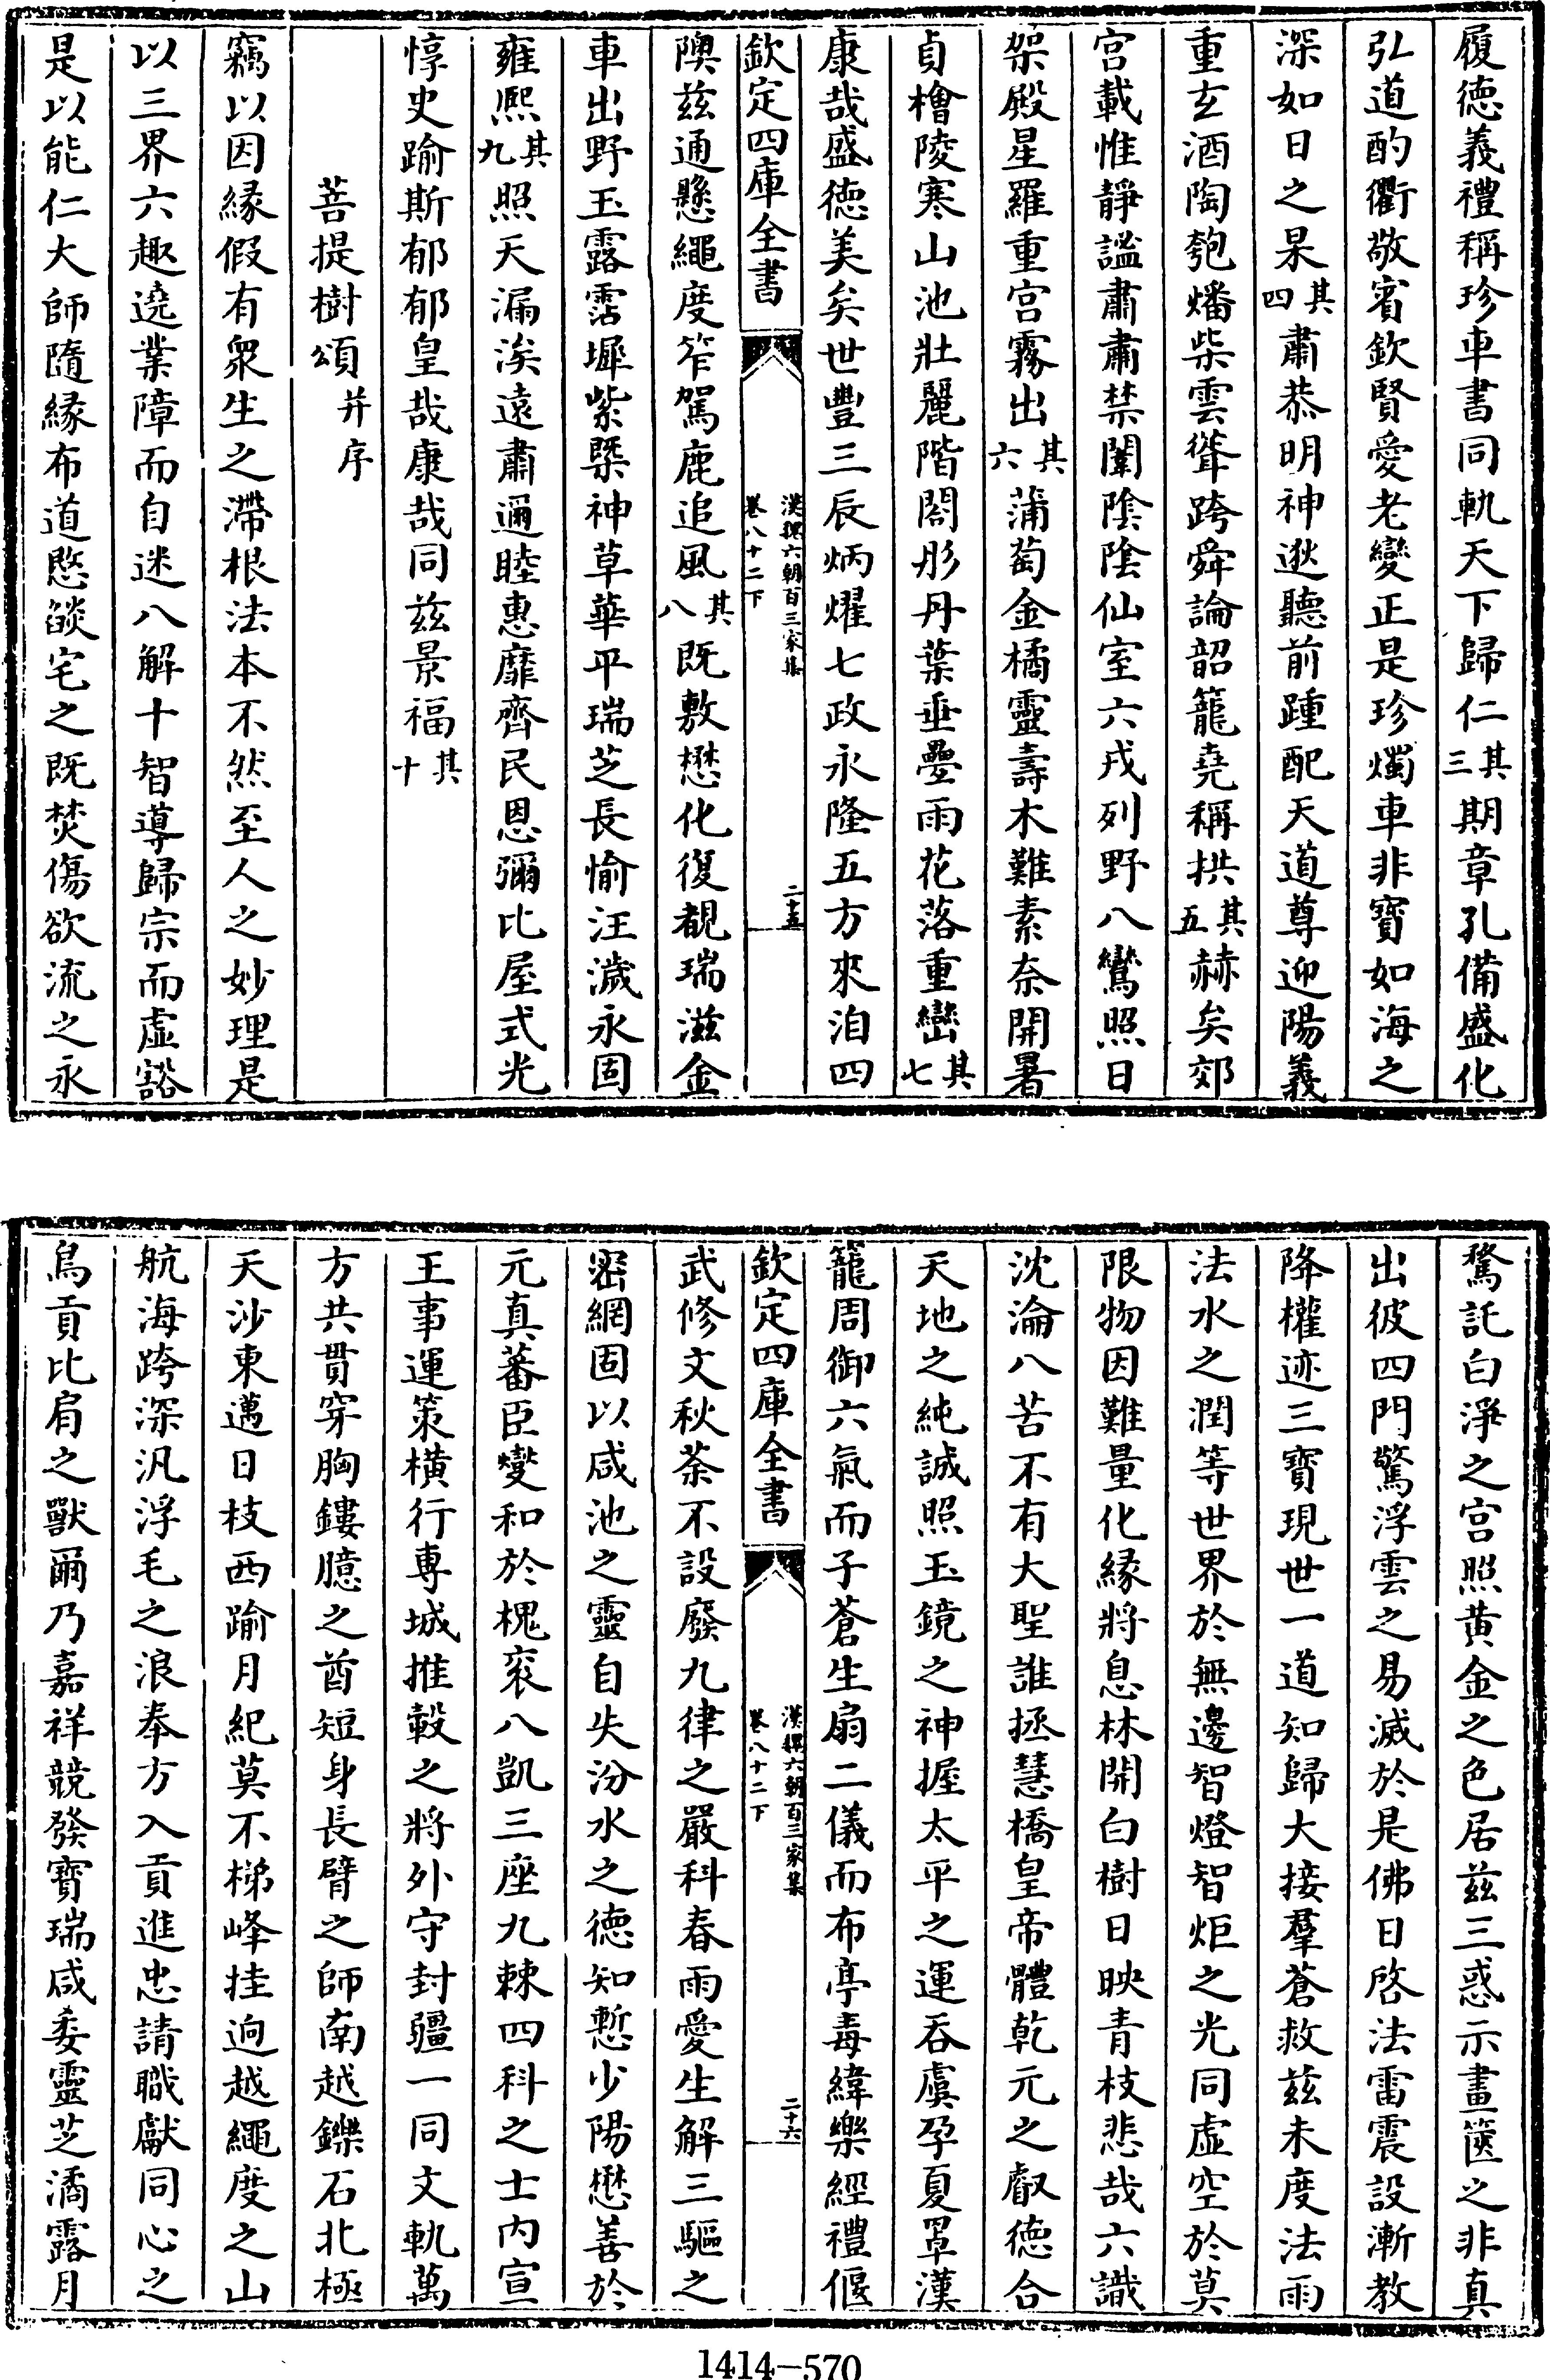 履徳義禮稱珍車書同軌天下歸仁其三期章孔備盛化
弘道酌衢敬賓欽賢愛老變正是珍燭車非寳如海之
深如日之杲其四肅恭明神逖聽前踵配天道尊迎陽義
重玄酒陶匏燔柴雲聳跨舜論韶籠堯稱拱其五赫矣郊
宫載惟靜謐肅肅禁闈陰陰仙室六戎列野八鸞照日
架殿星羅重宫霧出其六蒲萄金橘靈壽木難素柰開暑
貞檜陵寒山池壯麗階閣彤丹葉垂疊雨花落重巒其七
康哉盛徳美矣世豐三辰炳燿七政永隆五方來洎四
欽定四庫全書
漢魏六朝百三家集
卷八十二下
二十五
隩兹通懸繩度笮駕鹿追風其八既敷懋化復覩瑞滋金
車出野玉露霑墀紫槩神草華平瑞芝長愉汪濊永固
雍熙其九照天漏涘遠肅邇睦惠靡齊民恩彌比屋式光
惇史踰斯郁郁皇哉康哉同兹景福其十
菩提樹頌并序
竊以因緣假有衆生之滯根法本不然至人之妙理是
以三界六趣遶業障而自迷八解十智導歸宗而虚豁
是以能仁大師隨緣布道愍燄宅之既焚傷欲流之永
騖託白淨之宫照黄金之色居兹三惑示畫篋之非真
出彼四門驚浮雲之易滅於是佛日啓法雷震設漸教
降權迹三寳現世一道知歸大接羣蒼救兹未度法雨
法水之潤等世界於無邊智燈智炬之光同虚空於莫
限物因難量化緣將息林開白樹日映青枝悲哉六識
沈淪八苦不有大聖誰拯慧橋皇帝體乾元之叡徳合
天地之純誠照玉鏡之神握太平之運吞虞孕夏罩漢
籠周御六氣而子蒼生扇二儀而布亭毒緯樂經禮偃
欽定四庫全書
漢魏六朝百三家集
卷八十二下
二十六
武修文秋荼不設廢九律之嚴科春雨愛生解三驅之
密網固以咸池之靈自失汾水之徳知慙少陽懋善於
元真蕃臣燮和於槐衮八凱三座九棘四科之士内宣
王事運策横行專城推轂之將外守封疆一同文軌萬
方共貫穿胸鏤臆之酋短身長臂之師南越鑠石北極
天沙東邁日枝西踰月紀莫不梯峰挂迥越繩度之山
航海跨深汎浮毛之浪奉方入貢進忠請職獻同心之
鳥貢比肩之獸爾乃嘉祥競發寳瑞咸委靈芝潏露月
1414-570